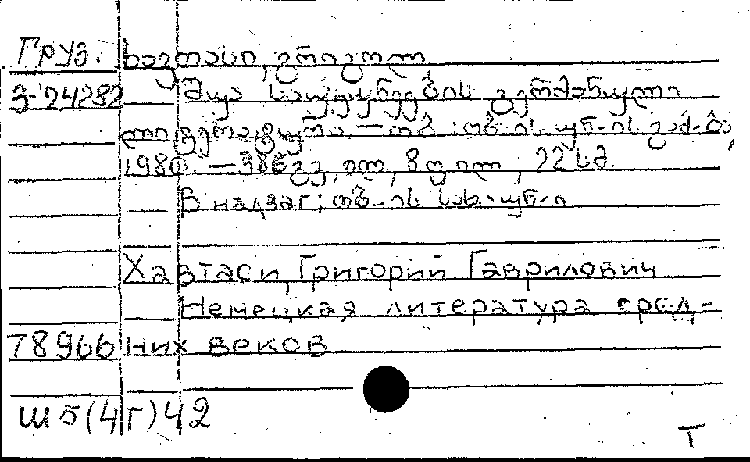 Груз. ხავთასი, გრიგოლ
3-24282 შუა საუკუნეების გერმანული
ლიტერატურა. — თბ.: თბ-ის უნ-ის გამ-ბა,
1980. — 386 გვ., ილ., 8 ფ. ილ.; 22 სმ.
В надзаг.: თბ-ის სახ. უნ-ი
Хавтаси, Григорий Гаврилович
Немецкая литература сред-
78966 них веков
Ш5(4Г)42
Т